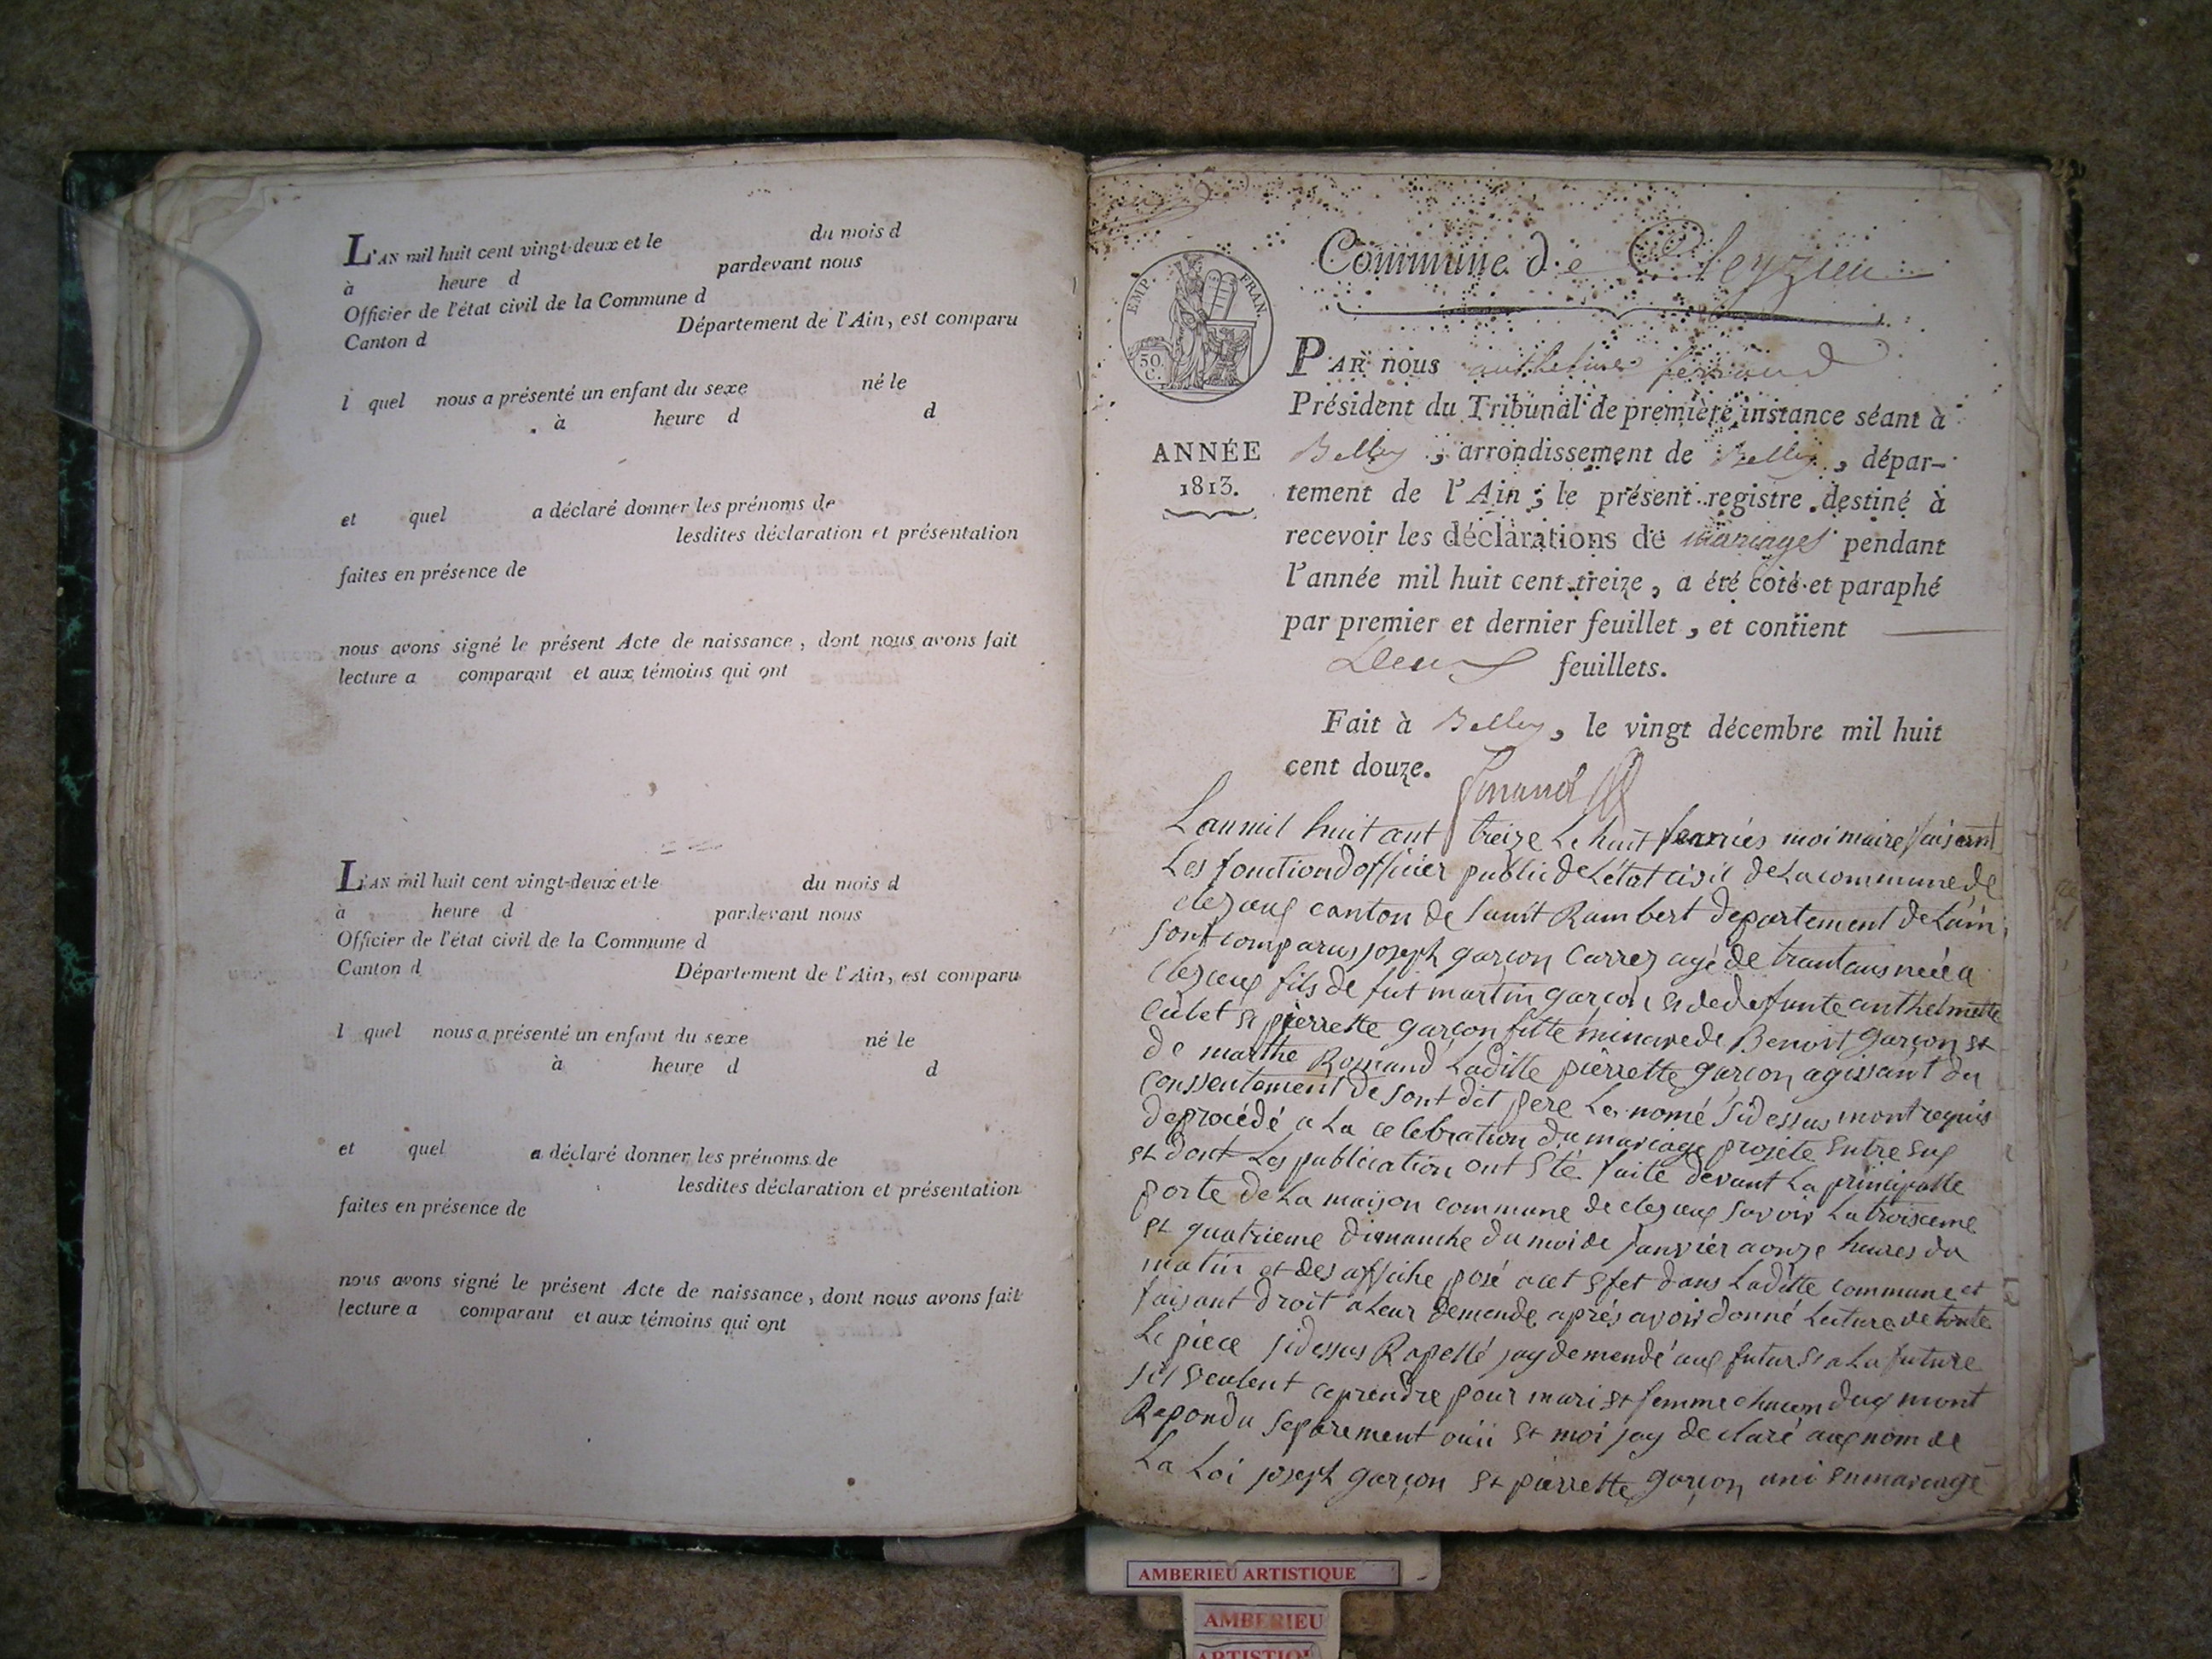 L'AN mil huit cent vingt-deux et le du mois d
à heure d pardevant nous
Officier de l'état civil de la Commune d
Canton d Département de l'Ain, est comparu
l quel nous a présenté un enfant du sexe né le
à heure d d
et quel a déclaré donner les prénoms de
lesdites déclaration et présentation
faites en présence de
nous avons signé le présent Acte de naissance, dont nous avons fait
lecture a comparant et aux témoins qui ont
L'AN mil huit cent vingt-deux et le du mois d
à heure d pardevant nous
Officier de l'état civil de la Commune d
Canton d Département de l'Ain, est comparu
l quel nous a présenté un enfant du sexe né le
à heure d d
et quel a déclaré donner les prénoms de
lesdites déclaration et présentation
faites en présence de
nous avons signé le présent Acte de naissance, dont nous avons fait
lecture a comparant et aux témoins qui ont
EMP. FRAN.
50 C.
ANNÉE
1813.
Commune de Cleyzieu
PAR nous anthelme ferrand
Président du Tribunal de première instance séant à
Belley, arrondissement de Belley, dépar-
tement de l'Ain; le présent registre destiné à
recevoir les déclarations de mariages pendant
l'année mil huit cent treize, a été coté et paraphé
par premier et dernier feuillet, et contient
Deux feuillets.
Fait à Belley, le vingt décembre mil huit
cent douze.
Lan mil huit cant treize Le huit moi maire faisant
Les fonction dofficier public de Létat civil de La commune de
canton de saint Rambert departement de Lain
sont comparus joseph garçon Carrez agé de trant ans neé a
fils de fut martin garçon et de defunte anthelmette
et pierrette garçon fille minare de Benoit garçon et
de marthe Romand Laditte pierrette garçon agissant du
conssentement de sont dit pere Les nomé sidessus mont requis
de procédé a La celebration du mariage projeté entre eux
et dont Les publication ont été faite devant La principalle
porte de La maison commune de savoir La troisieme
et quatrieme dimanche du moi de janvier a onze heures du
matin et des affiche posé a cet efet dans Laditte commune et
faisant droit a Leur demende aprés avoir donné Lecture de toute
Le piece sidessus Rapellé jay demendé aux futur et a La future
sils veulent ce prendre pour mari et femme chacun deux mont
Repondu separement ouii et moi jay declaré aux nom de
La Loi joseph garçon et pierrette garçon uni en mariage
AMBERIEU ARTISTIQUE
AMBERIEU
ARTISTIQUE